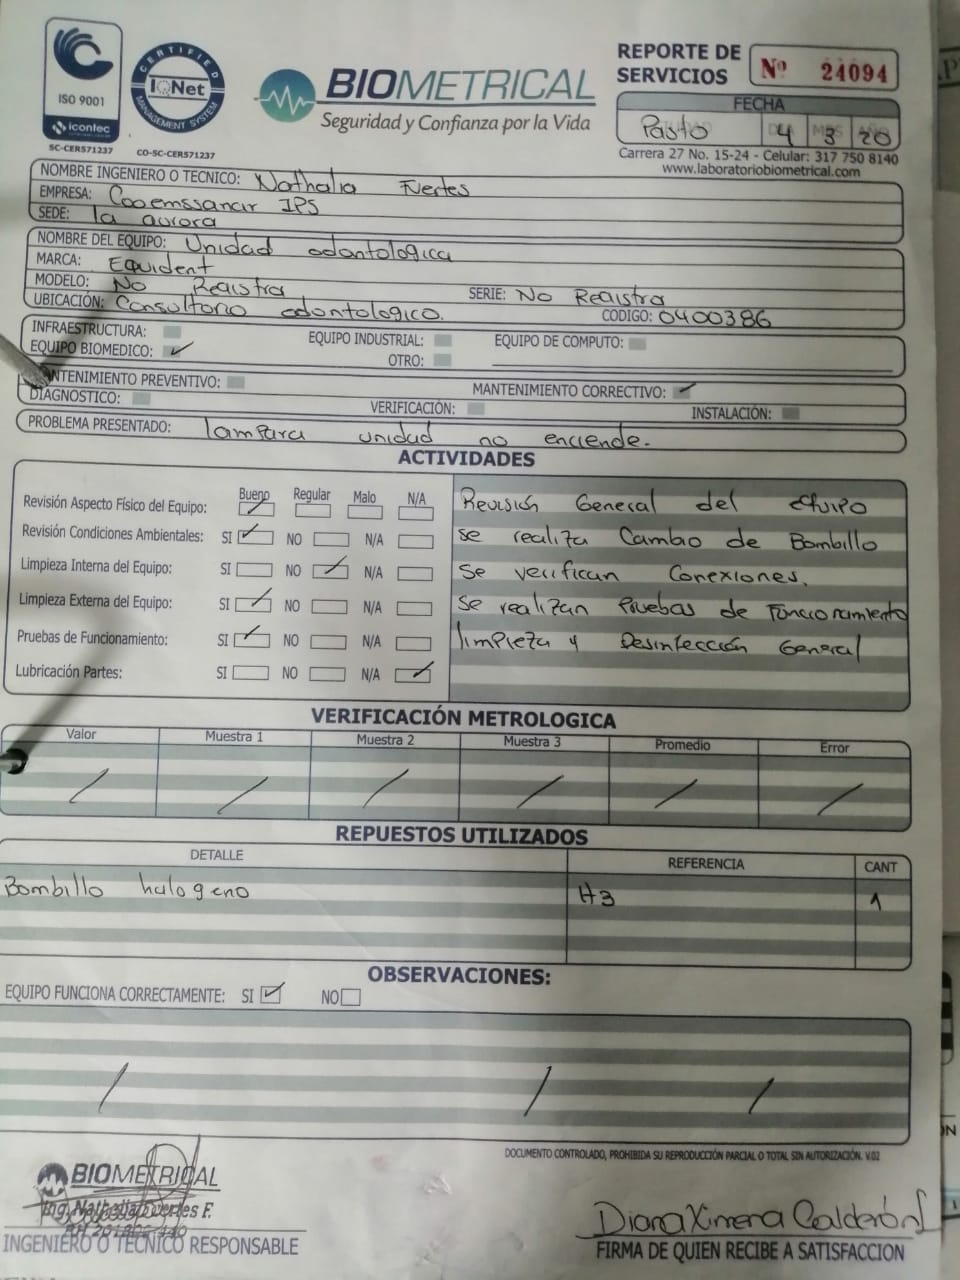 ISO 9001
icontec
SC-CER571237
CERTIFIED
IQNet
MANAGEMENT SYSTEM
CO-SC-CER571237
BIOMETRICAL
Seguridad y Confianza por la Vida
REPORTE DE SERVICIOS
Nº 24094
FECHA
Pasto 4 3 20
Carrera 27 No. 15-24 - Celular: 317 750 8140
www.laboratoriobiometrical.com
NOMBRE INGENIERO O TÉCNICO: Nathalia Fuertes
EMPRESA: Cooemssanar IPS
SEDE: la aurora
NOMBRE DEL EQUIPO: Unidad odontologica
MARCA: Equident
MODELO: No Registra SERIE: No Registra
UBICACIÓN: Consultorio odontologico. CODIGO: 0400386
INFRAESTRUCTURA: EQUIPO INDUSTRIAL: EQUIPO DE COMPUTO:
EQUIPO BIOMEDICO: ✓ OTRO:
MANTENIMIENTO PREVENTIVO: MANTENIMIENTO CORRECTIVO: ✓
DIAGNOSTICO: VERIFICACIÓN: INSTALACIÓN:
PROBLEMA PRESENTADO: lampara unidad no enciende.
ACTIVIDADES
Bueno Regular Malo N/A
Revisión Aspecto Físico del Equipo: ✓
Revisión Condiciones Ambientales: SI ✓ NO N/A
Limpieza Interna del Equipo: SI NO ✓ N/A
Limpieza Externa del Equipo: SI ✓ NO N/A
Pruebas de Funcionamiento: SI ✓ NO N/A
Lubricación Partes: SI NO N/A ✓
Revisión General del equipo
se realiza Cambio de Bombillo
se verifican Conexiones.
se realizan Pruebas de Funcionamiento
limpieza y Desinfección General
VERIFICACIÓN METROLOGICA
Valor Muestra 1 Muestra 2 Muestra 3 Promedio Error
/ / / / / /
REPUESTOS UTILIZADOS
DETALLE REFERENCIA CANT
Bombillo halogeno H3 1
OBSERVACIONES:
EQUIPO FUNCIONA CORRECTAMENTE: SI ✓ NO
/ / /
DOCUMENTO CONTROLADO, PROHIBIDA SU REPRODUCCIÓN PARCIAL O TOTAL SIN AUTORIZACIÓN. V.02
BIOMETRICAL
Ing. Nathalia Fuertes F.
INGENIERO O TÉCNICO RESPONSABLE
Diana Ximena Calderón
FIRMA DE QUIEN RECIBE A SATISFACCION